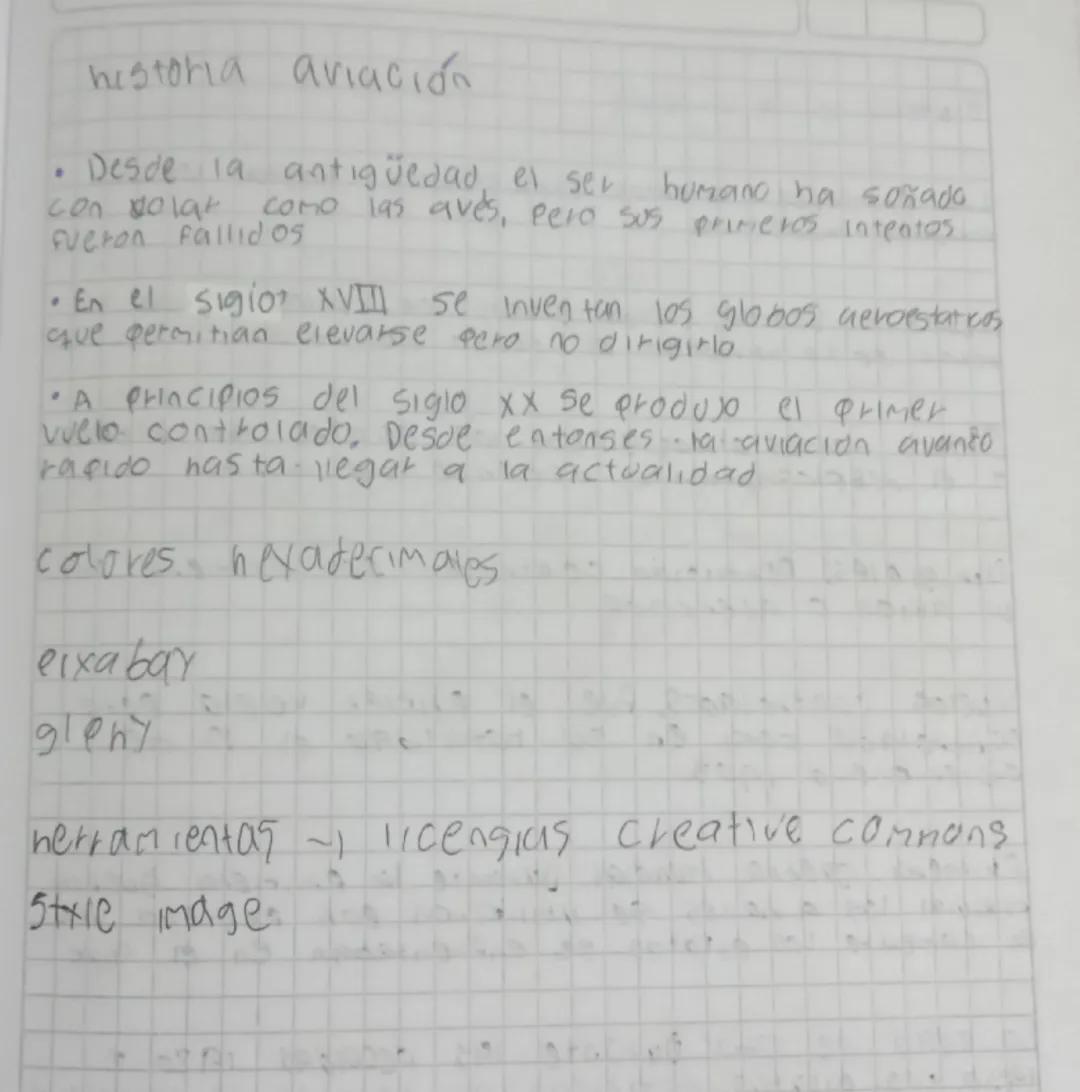 historia aviación
• Desde la antigüedad, el ser humano ha soñado
con volar como las aves, pero sus primeros intentos
fueron fallidos
• En el siglo XVIII se inventan los globos aerostaticos
que permitian elevarse pero no dirigirlo
• A principios del siglo XX se produjo el primer
vuelo controlado. Desde entonses la aviación avanzo
rapido hasta llegar a la actualidad
colores hexadecimales
pixabay
herramientas → licengias creative commons
Style image